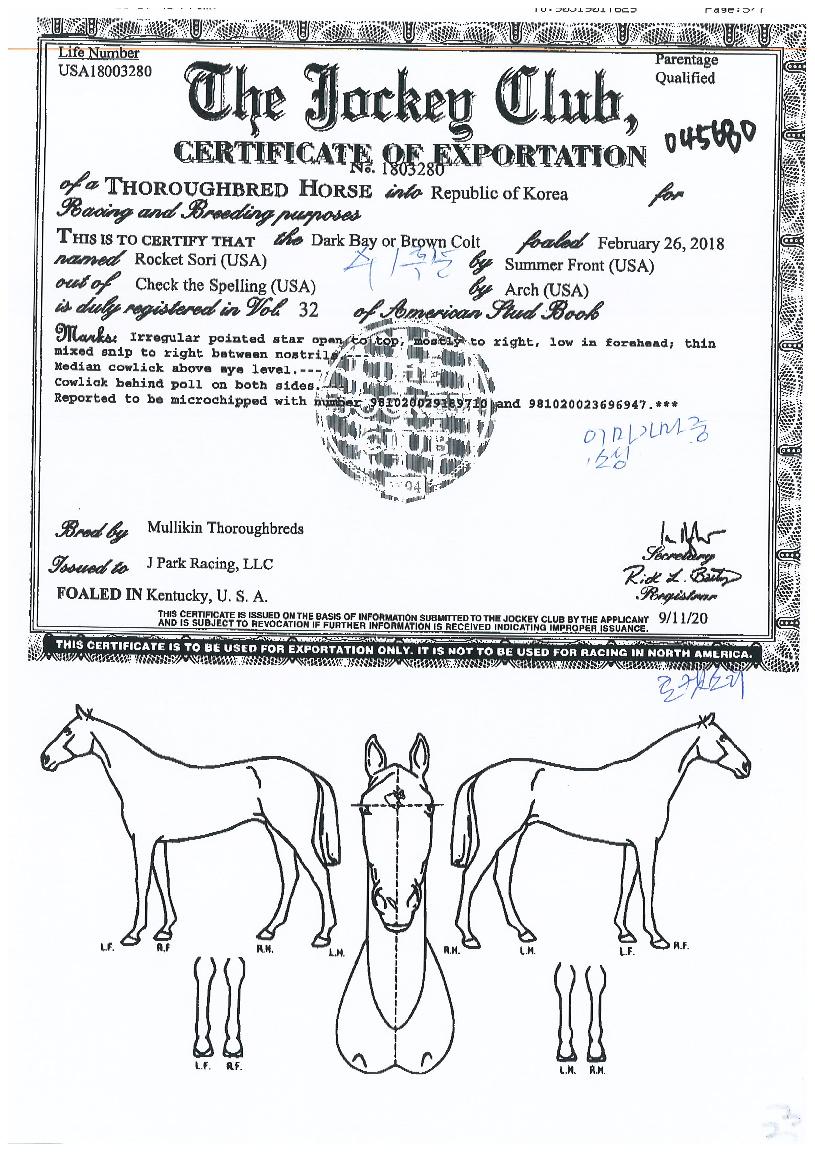 Life Number
USA18003280
Parentage
Qualified
The Jockey Club,
045680
CERTIFICATE OF EXPORTATION
No. 1803280
of a THOROUGHBRED HORSE into Republic of Korea for
Racing and Breeding purposes
THIS IS TO CERTIFY THAT the Dark Bay or Brown Colt foaled February 26, 2018
named Rocket Sori (USA) by Summer Front (USA)
out of Check the Spelling (USA) by Arch (USA)
is duly registered in Vol. 32 of American Stud Book
Marks: Irregular pointed star open to top, mostly to right, low in forehead; thin
mixed snip to right between nostrils.
Median cowlick above eye level.---
Cowlick behind poll on both sides.
Reported to be microchipped with number 981020029189710 and 981020023696947.***
Bred by Mullikin Thoroughbreds
Issued to J Park Racing, LLC
Secretary
Registrar
FOALED IN Kentucky, U. S. A.
THIS CERTIFICATE IS ISSUED ON THE BASIS OF INFORMATION SUBMITTED TO THE JOCKEY CLUB BY THE APPLICANT
AND IS SUBJECT TO REVOCATION IF FURTHER INFORMATION IS RECEIVED INDICATING IMPROPER ISSUANCE.
9/11/20
THIS CERTIFICATE IS TO BE USED FOR EXPORTATION ONLY. IT IS NOT TO BE USED FOR RACING IN NORTH AMERICA.
로켓소리
L.F. R.F R.H. L.H. R.H. L.H. L.F. R.F.
L.F. R.F. L.H. R.H.